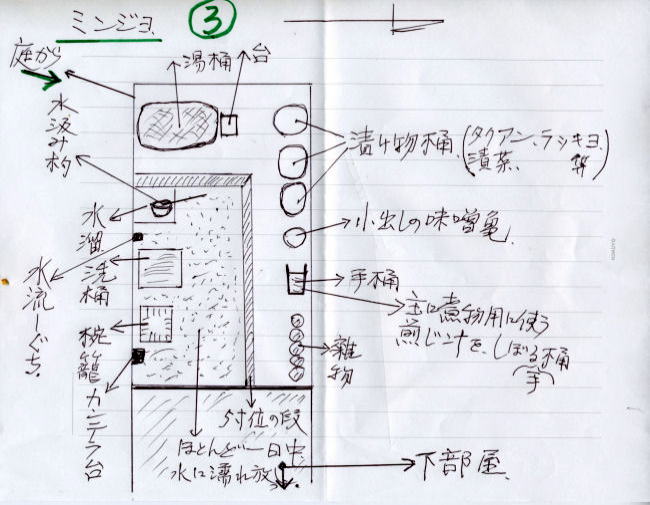 ミンジョ
③
庭から
湯桶
台
水汲み杓
漬け物桶
(タクアン、ラッキョ
漬菜、等)
水溜
小出しの味噌亀
洗桶
手桶
水流しぐち
主に煮物用に使う
煎じンナを、しぼる桶
(手)
椀籠
雑物
カンテラ台
5寸位の段
ほとんど一日中
水に濡れ放し
下部屋